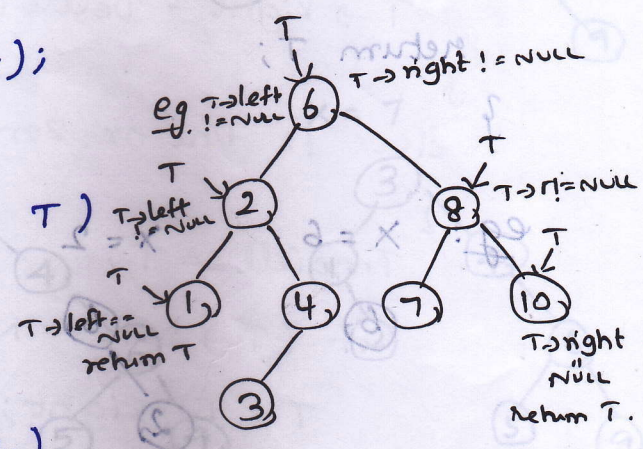 );
T
T→right != NULL
eg T→left != NULL
6
T
T
T→left != NULL
2
8
T→r!=NULL
T)
T
T
1
4
7
10
T→left== NULL
return T
T→right
=
NULL
return T.
3
)